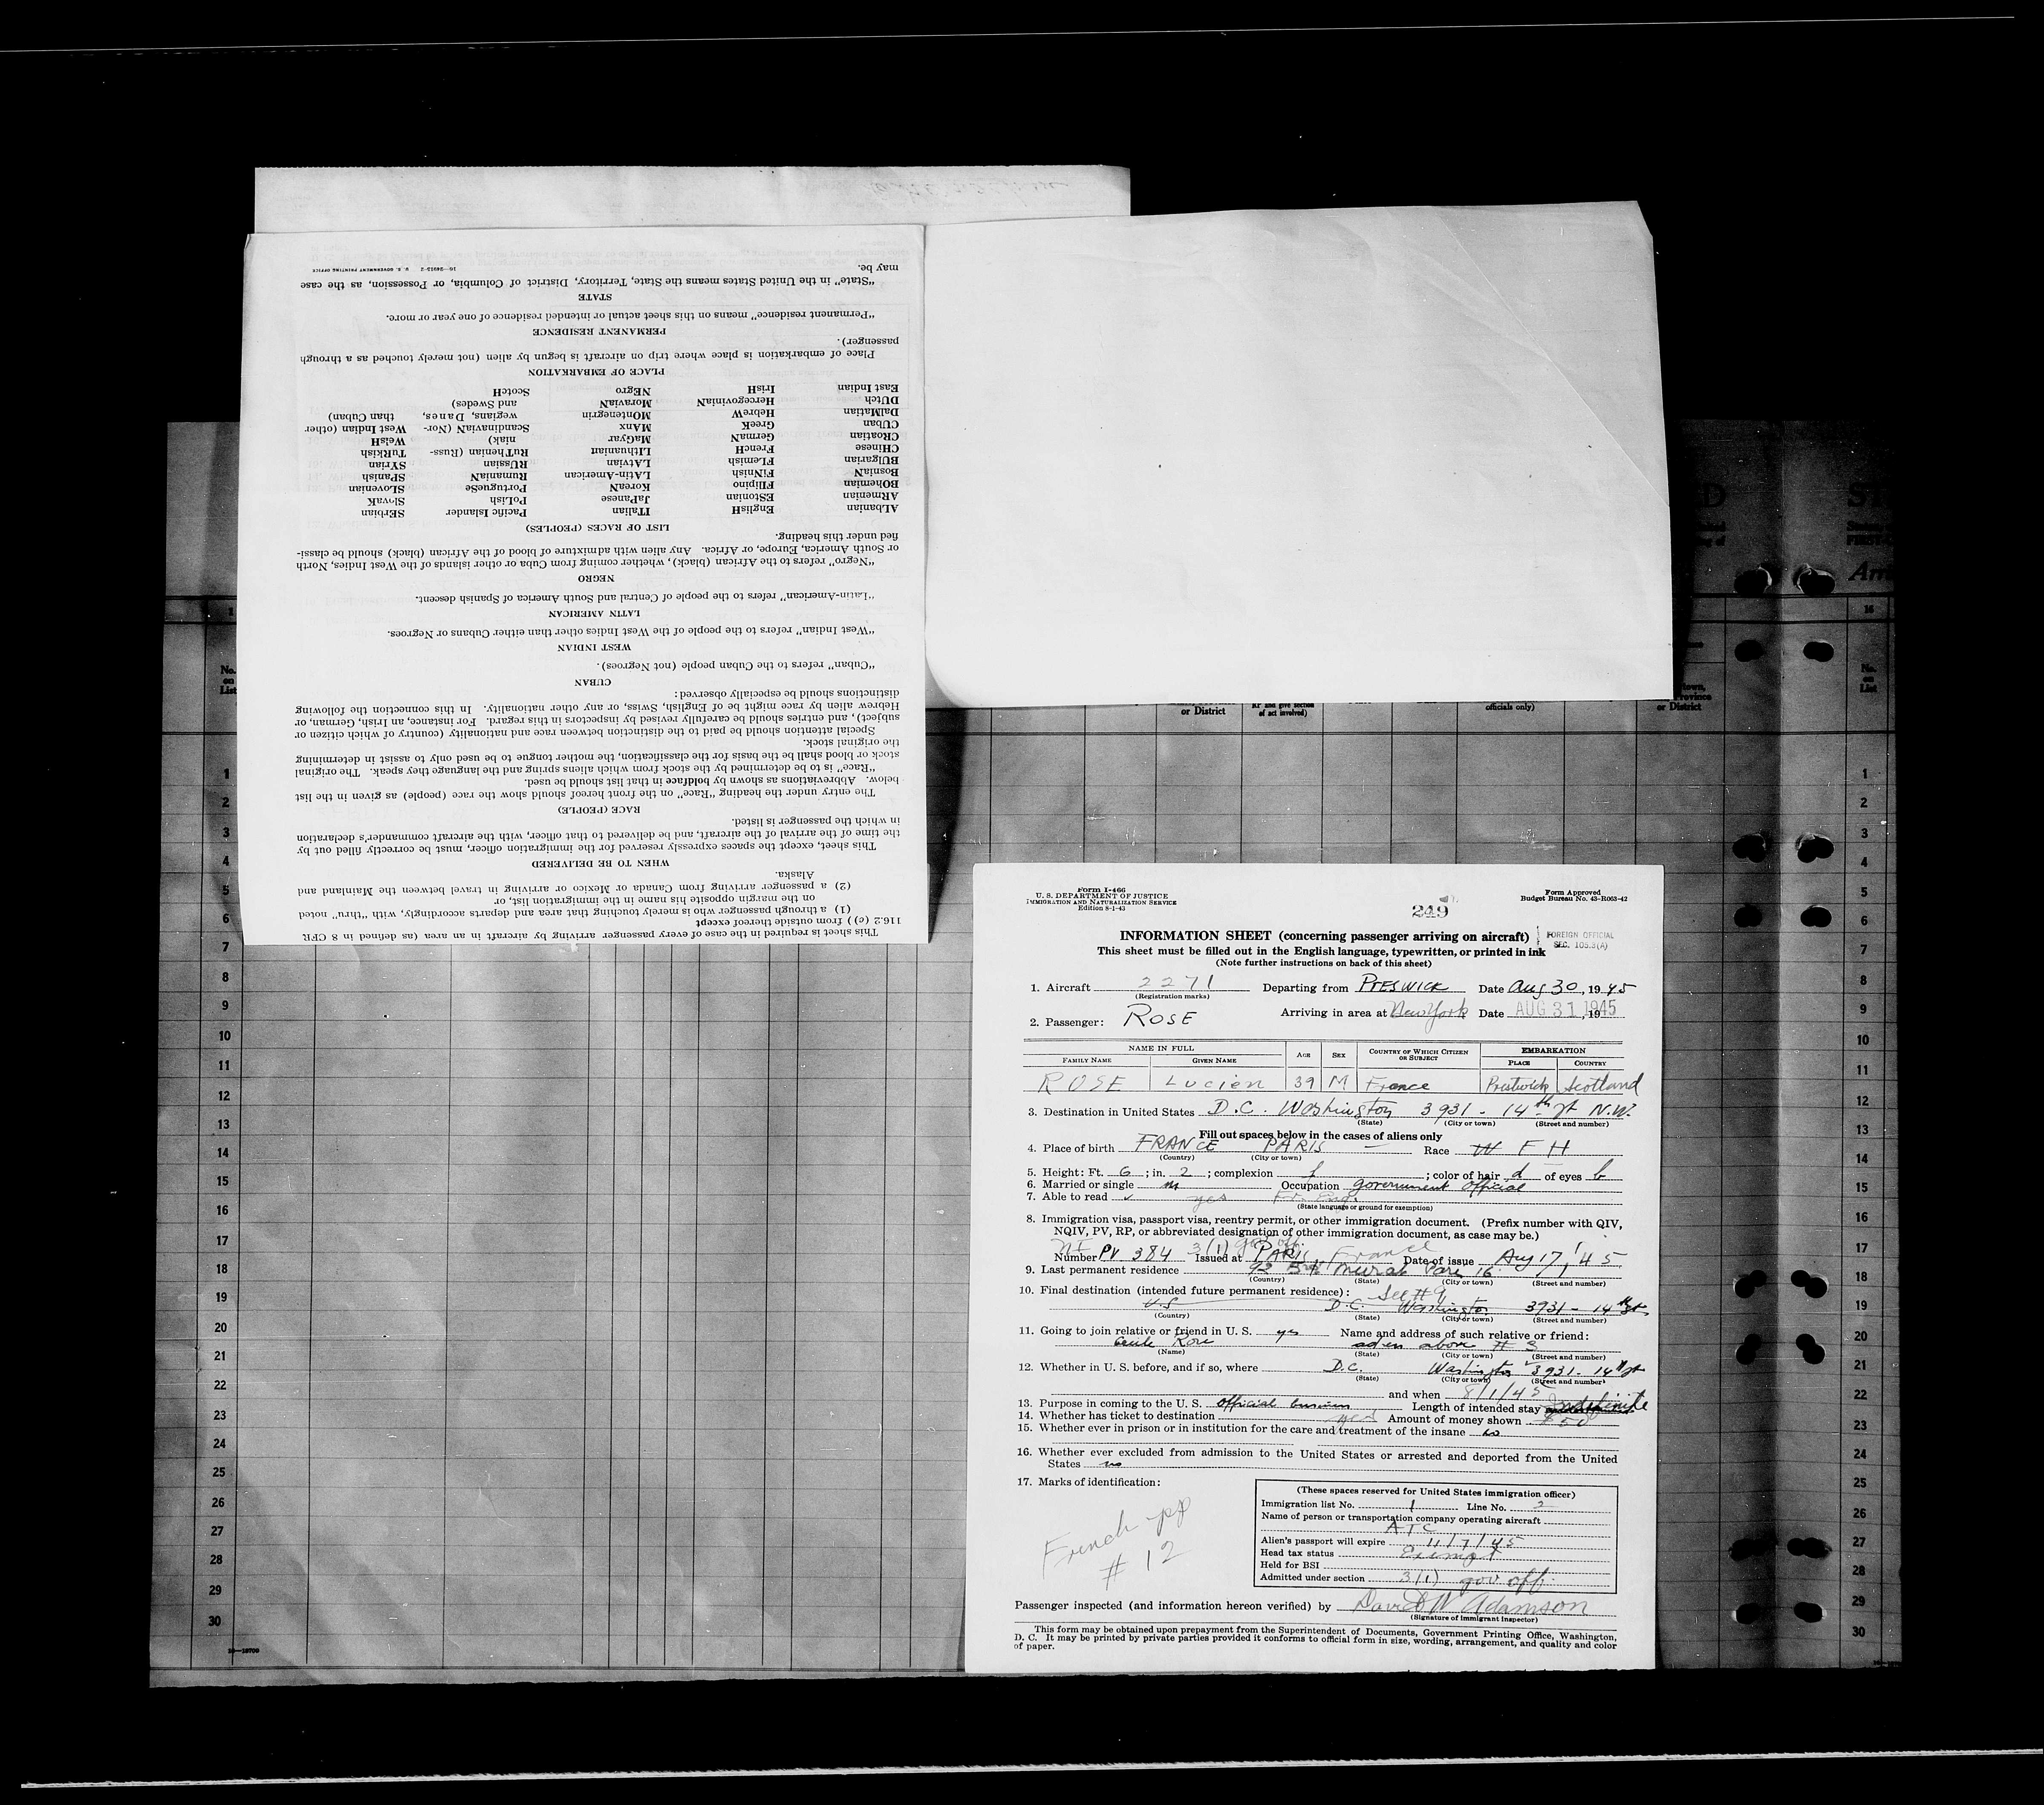 This sheet is required in the case of every passenger arriving by aircraft in an area (as defined in 8 CFR
116.2 (c)) from outside thereof except
(1) a through passenger who is merely touching that area and departs accordingly, with "thru" noted
on the margin opposite his name in the immigration list, or
(2) a passenger arriving from Canada or Mexico or arriving in travel between the Mainland and
Alaska.
WHEN TO BE DELIVERED
This sheet, except the spaces expressly reserved for the immigration officer, must be correctly filled out by
the time of the arrival of the aircraft, and be delivered to that officer, with the aircraft commander's declaration
in which the passenger is listed.
RACE (PEOPLE)
The entry under the heading "Race" on the front hereof should show the race (people) as given in the list
below. Abbreviations as shown by boldface in that list should be used.
"Race" is to be determined by the stock from which aliens spring and the language they speak. The original
stock or blood shall be the basis for the classification, the mother tongue to be used only to assist in determining
the original stock.
Special attention should be paid to the distinction between race and nationality (country of which citizen or
subject), and entries should be carefully revised by inspectors in this regard. For instance, an Irish, German, or
Hebrew alien by race might be of English, Swiss, or any other nationality. In this connection the following
distinctions should be especially observed:
CUBAN
"Cuban" refers to the Cuban people (not Negroes).
WEST INDIAN
"West Indian" refers to the people of the West Indies other than either Cubans or Negroes.
LATIN AMERICAN
"Latin-American" refers to the people of Central and South America of Spanish descent.
NEGRO
"Negro" refers to the African (black), whether coming from Cuba or other islands of the West Indies, North
or South America, Europe, or Africa. Any alien with admixture of blood of the African (black) should be classi-
fied under this heading.
LIST OF RACES (PEOPLES)
ALbanian EnglisH ITalian Pacific Islander SErbian
ARmenian EStonian JaPanese PoLish SlovaK
BOhemian FIlipino KoreaN PortugueSe SLovenian
BosniaN FiNnish LAtin-American RumaniaN SPanish
BUlgarian FLemish LATvian RUssian SYrian
CHinese FrencH LIthuanian RuThenian (Russ- TuRkish
CRoatian GermaN MaGyar niak) WelsH
CUban GreeK MAnx ScandinaviaN (Nor- West Indian (other
DalMatian HebreW MOntenegrin wegians, Danes, than Cuban)
DUtch HercegoviniaN MoraviaN and Swedes)
East Indian IrisH NEgro ScotcH
PLACE OF EMBARKATION
Place of embarkation is place where trip on aircraft is begun by alien (not merely touched as a through
passenger).
PERMANENT RESIDENCE
"Permanent residence" means on this sheet actual or intended residence of one year or more.
STATE
"State" in the United States means the State, Territory, District of Columbia, or Possession, as the case
may be.
16—24913-2 U. S. GOVERNMENT PRINTING OFFICE
No.
on
List
1
2
3
4
5
6
7
8
9
10
11
12
13
14
15
16
17
18
19
20
21
22
23
24
25
26
27
28
29
30
or District
RP and give section
of act involved)
officials only)
or District
16
No.
on
List
1
2
3
4
5
6
7
8
9
10
11
12
13
14
15
16
17
18
19
20
21
22
23
24
25
26
27
28
29
30
Form I-466
U. S. DEPARTMENT OF JUSTICE
IMMIGRATION AND NATURALIZATION SERVICE
Edition 8-1-43
249
Form Approved
Budget Bureau No. 43-R063-42
INFORMATION SHEET (concerning passenger arriving on aircraft)
FOREIGN OFFICIAL
SEC. 105.3(A)
This sheet must be filled out in the English language, typewritten, or printed in ink
(Note further instructions on back of this sheet)
1. Aircraft 2271 Departing from PRESWICK Date Aug 30, 1945
(Registration marks)
Arriving in area at New York Date AUG 31 1945, 19
2. Passenger: ROSE
NAME IN FULL AGE SEX COUNTRY OF WHICH CITIZEN OR SUBJECT EMBARKATION
FAMILY NAME GIVEN NAME PLACE COUNTRY
ROSE Lucien 39 M France Prestwick Scotland
3. Destination in United States D.C. Washington 3931 - 14th St N.W.
(State) (City or town) (Street and number)
Fill out spaces below in the cases of aliens only
4. Place of birth FRANCE PARIS — Race W F H
(Country) (City or town)
5. Height: Ft. 6; in. 2; complexion f; color of hair d of eyes b
6. Married or single m Occupation government official
7. Able to read yes Fr. Eng.
(State language or ground for exemption)
8. Immigration visa, passport visa, reentry permit, or other immigration document. (Prefix number with QIV,
NQIV, PV, RP, or abbreviated designation of other immigration document, as case may be.)
3(1) gov off.
Number PV 384 Issued at PARIS, France Date of issue Aug 17, 45
9. Last permanent residence 92 Bd Murat Paris 16
(Country) (State) (City or town) (Street and number)
10. Final destination (intended future permanent residence): See #9
U.S D.C. Washington 3931 - 14th St
(Country) (State) (City or town) (Street and number)
11. Going to join relative or friend in U. S. yes Name and address of such relative or friend:
Cecile Rose above # 3
(Name) (State) (City or town) (Street and number)
12. Whether in U. S. before, and if so, where D.C. Washington 3931 - 14th St
(State) (City or town) (Street and number)
and when 8/1/45
13. Purpose in coming to the U. S. official business Length of intended stay Indefinite
14. Whether has ticket to destination yes Amount of money shown $50
15. Whether ever in prison or in institution for the care and treatment of the insane no
16. Whether ever excluded from admission to the United States or arrested and deported from the United
States no
17. Marks of identification:
French pp
# 12
(These spaces reserved for United States immigration officer)
Immigration list No. 1 Line No. 2
Name of person or transportation company operating aircraft
ATC
Alien's passport will expire 11/7/45
Head tax status Exempt
Held for BSI
Admitted under section 3(1) gov off.
Passenger inspected (and information hereon verified) by David W Adamson
(Signature of Immigrant Inspector)
This form may be obtained upon prepayment from the Superintendent of Documents, Government Printing Office, Washington,
D. C. It may be printed by private parties provided it conforms to official form in size, wording, arrangement, and quality and color
of paper.